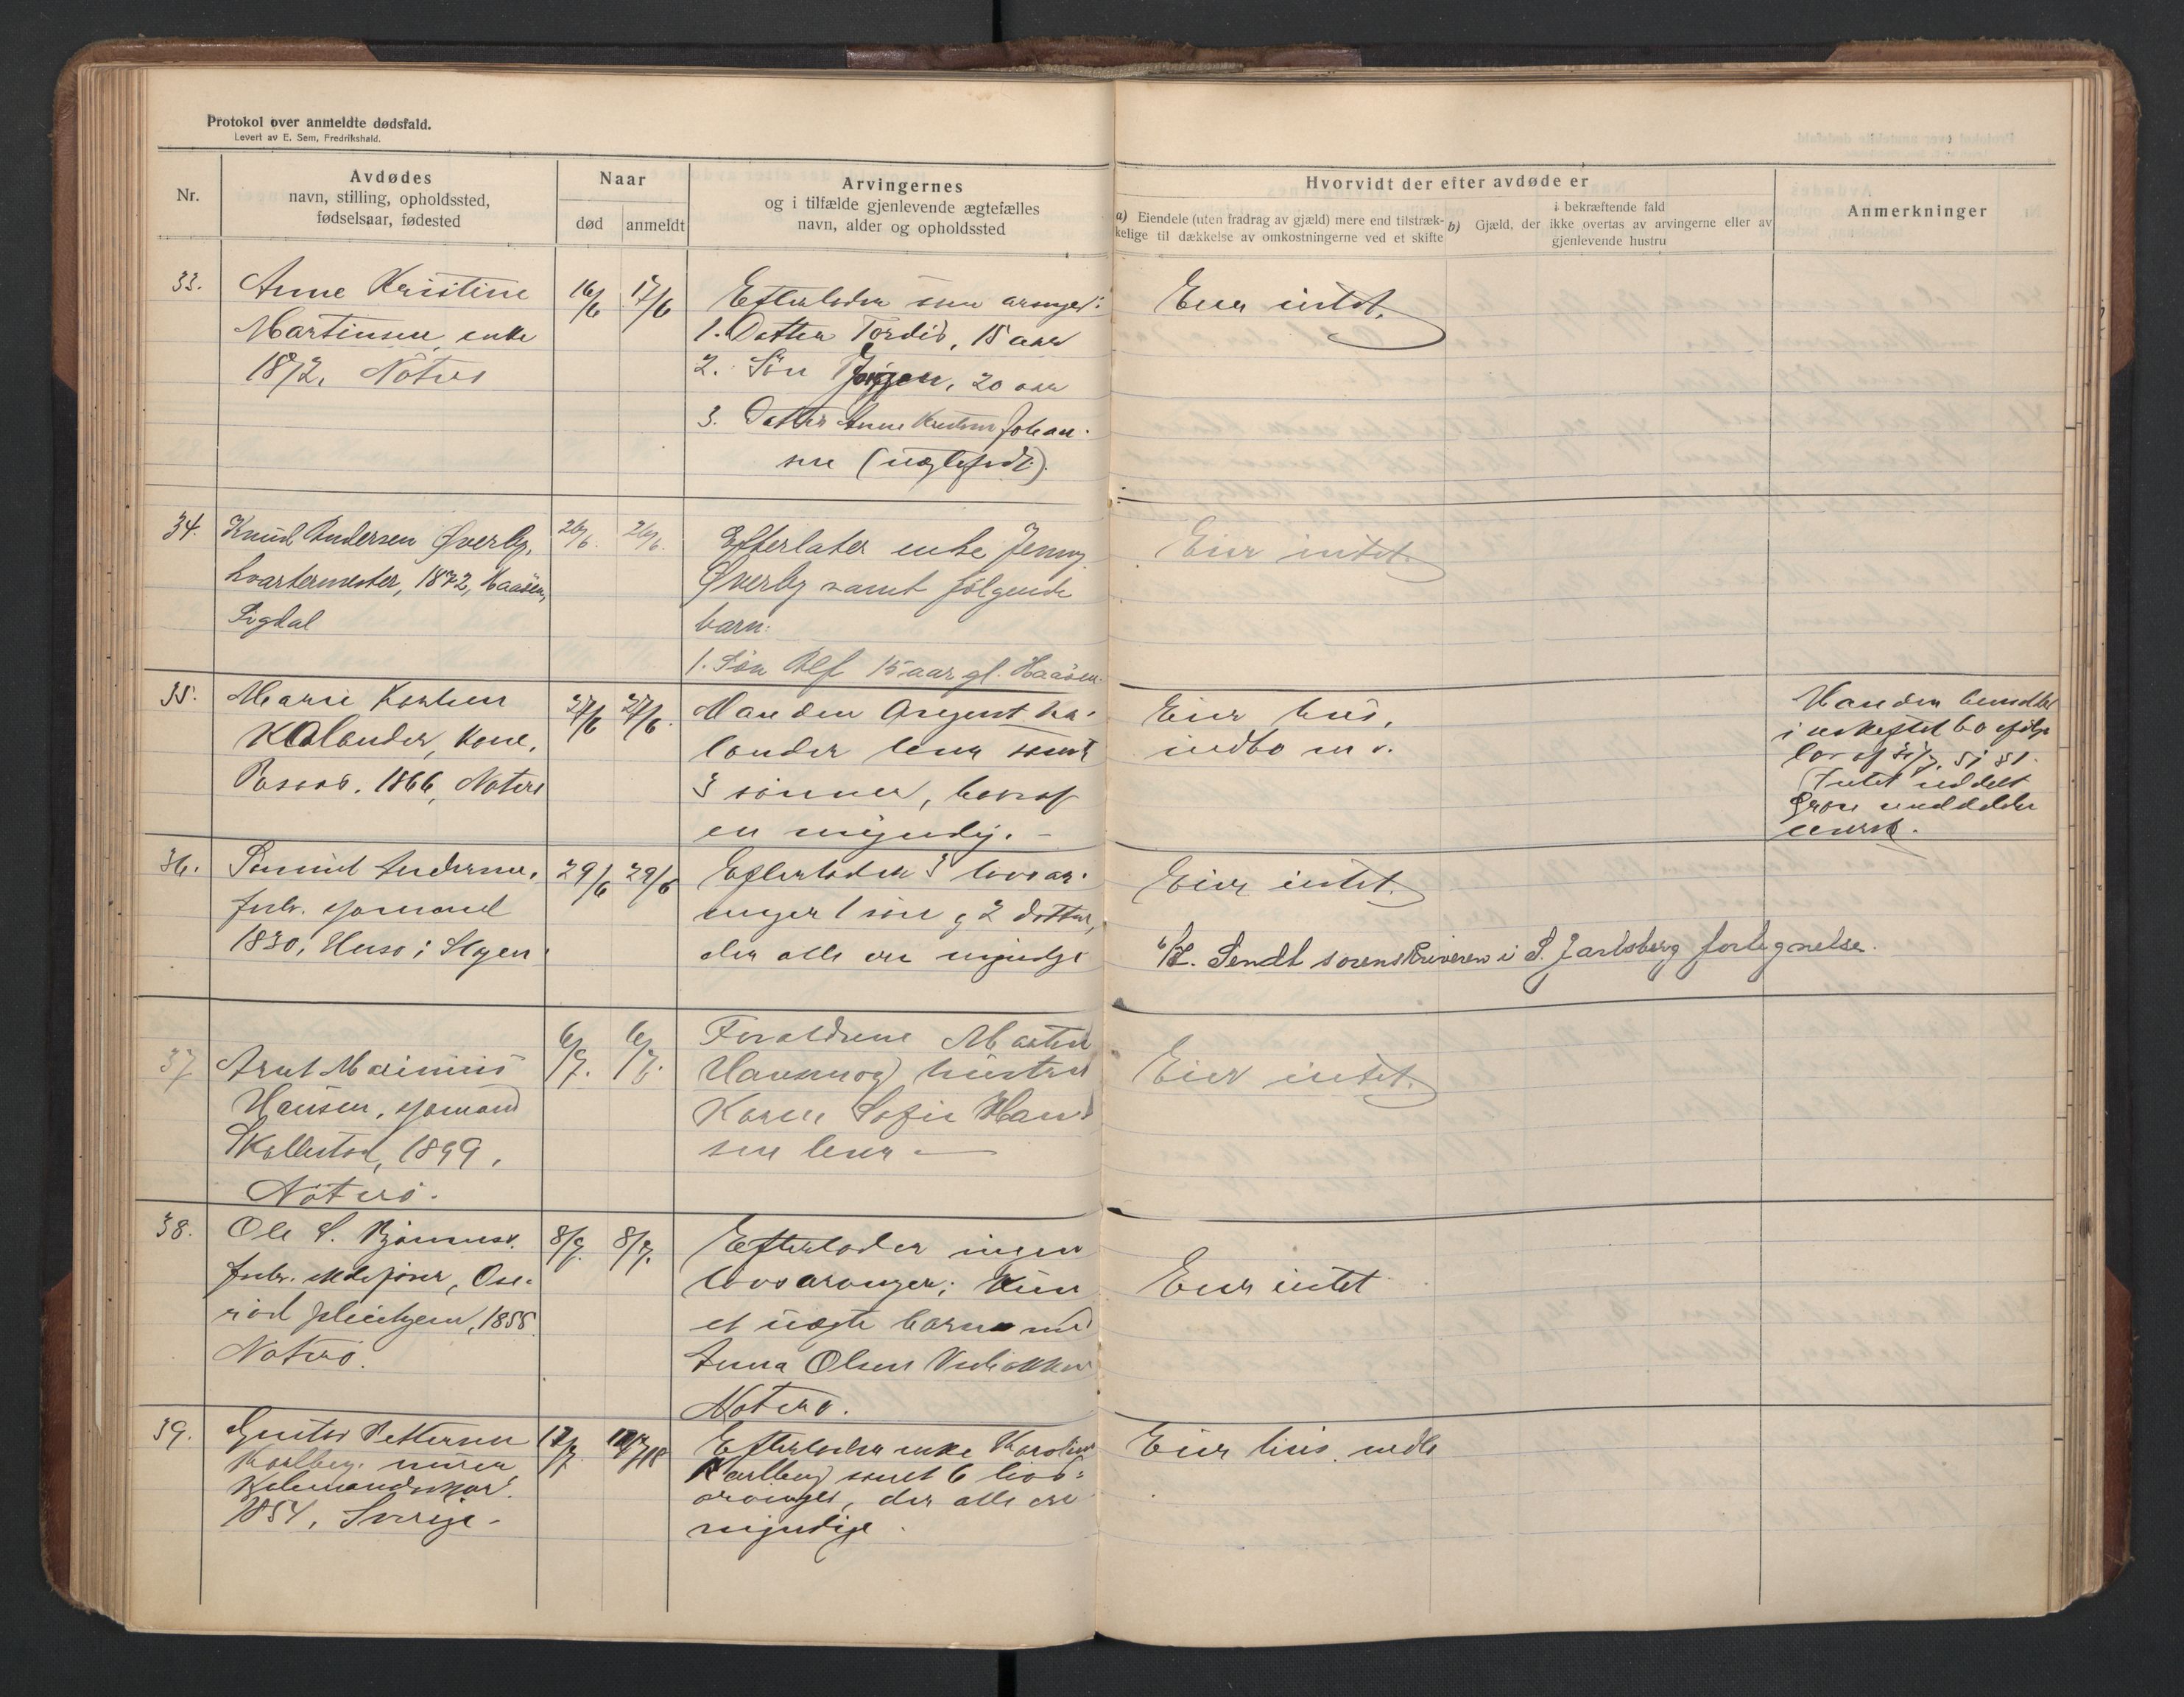 Protokol over anmeldte dødsfald.
Levert av E. Sem, Fredrikshald.
Nr.
Avdødes
navn, stilling, opholdssted,
fødselsaar, fødested
Naar
død
anmeldt
Arvingernes
og i tilfælde gjenlevende ægtefælles
navn, alder og opholdssted
Hvorvidt der efter avdøde er
a) Eiendele (uten fradrag av gjæld) mere end tilstræk-
kelige til dækkelse av omkostningerne ved et skifte
i bekræftende fald
b) Gjæld, der ikke overtas av arvingerne eller av
gjenlevende hustru
Anmerkninger
33.
Anne Kristine
Martinsen, enke
1872, Nøterø
16/6
17/6
Efterlader som arvinger:
1. Datter Tordis, 15 aar
2. Søn Jørgen, 20 aar
3. Datter Anne Kristine Johan-
sen (uægtefødt).
Eier intet.
34.
Knud Andersen Øverby,
kvartermester, 1872, Haaøen,
Sigdal
26/6.
26/6.
Efterlater enke Jenny
Øverby samt følgende
barn:
1. Søn Alf 15 aar gl. Haaøen
Eier intet.
35.
Marie
Kolander, kone,
1866, Nøterø
27/6
27/6.
Manden August Ko-
lander lever samt
3 sønner, hvoraf
en myndig. -
Eier hus,
indbo m v.
Manden hensitter
i uskiftet bo ifølge
lov af 31/7 51 § 1.
Intet uddelt
36.
Samuel Andersen,
forh. sjømand
1830, Husø i Slagen
29/6
29/6
Efterlader 3 livsar-
vinger 1 søn og 2 døttre,
der alle er myndige
Eier intet.
Sendt sorenskriveren i S. Jarlsberg fortegnelse.
37
Arnt Marinius
Hansen, sjømand
Skallestad, 1899,
Nøterø.
6/7.
6/7.
Forældrene Martin
Hansen og hustru
Karen Sofie Han-
sen lever
Eier intet.
38.
Ole S. Bjønnes.
forh. skibsfører, Ose-
rød pleiehjem, 1855
Nøterø.
8/7.
8/7.
Efterlader ingen
livsarvinger; Kun
et uægte barn med
Anna Olsen
Nøterø.
Eier intet
39.
Gustav Pettersen
Karlberg, murer
1854, Sverige -
17/7.
17/7 18
Efterlader enke Karoline
Karlberg samt 6 livs-
arvinger, der alle er
myndige.
Eier hus